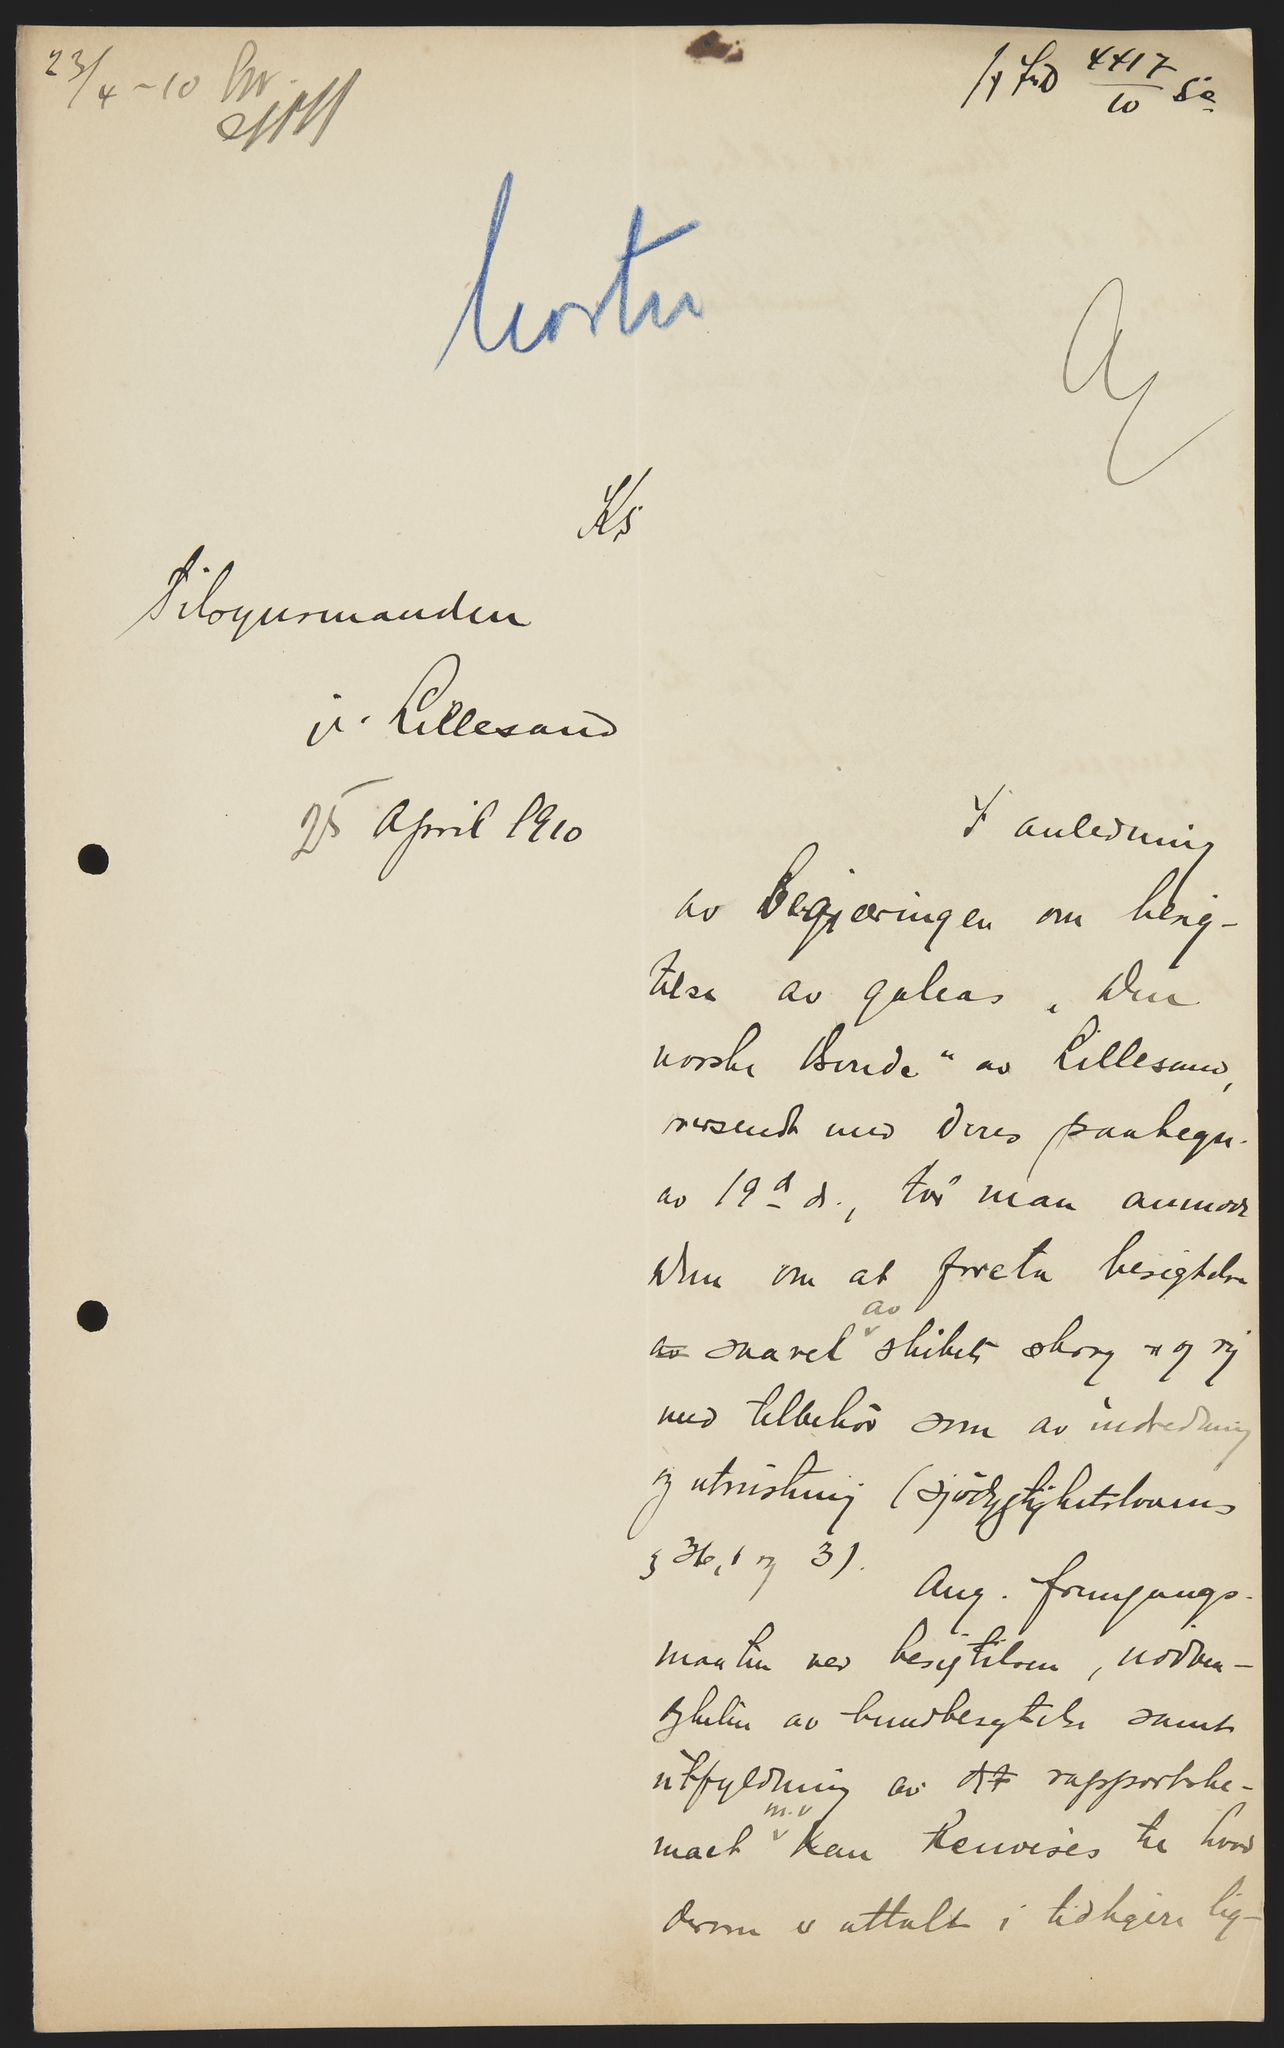 23/4-10
4417
10
haster
Ks
Tilsynsmanden
i Lillesand
25 April 1910
I anledning
av Begjæringen om besig-
telse av galeas „Den
norske Bonde" av Lillesand,
versendt med Deres paategn.
av 19d d., tør man anmode
Dem om at foreta besigtelse
av saavel av skibets skrog og rig
med tilbehør som av indredning
og utrustning (sjødygtighetslovens
§ 36,1 og 3).
Ang. fremgangs-
maaten ved besigtelsen, nødven-
digheten av bundbesigtelse samt
utfyldning av rapportske-
maet m.v kan henvises til hvad
derom er uttalt i tidligere lig-